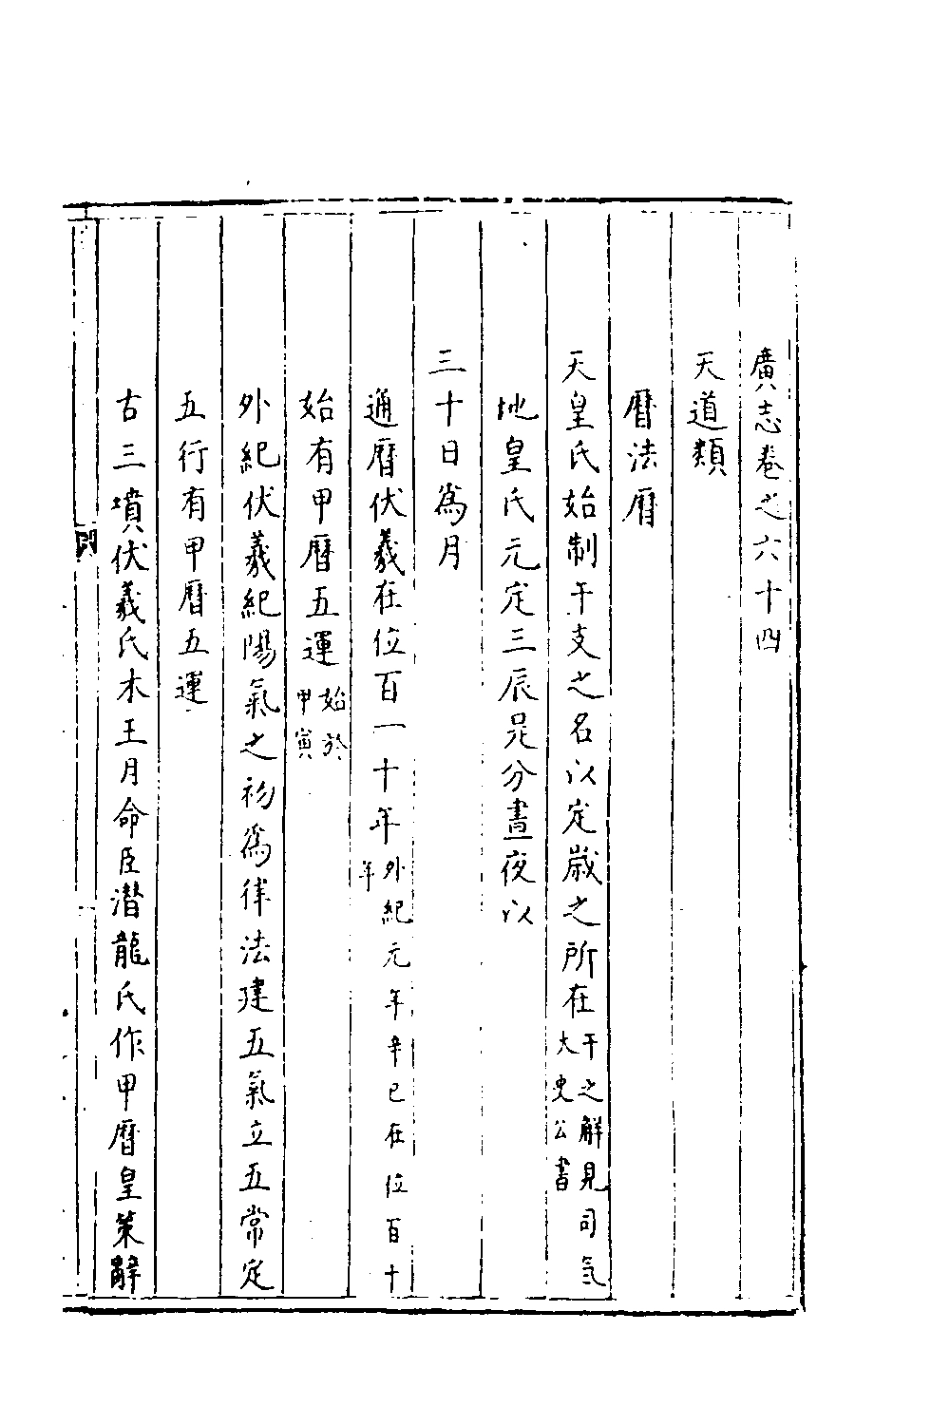 廣志卷之六十四
天道類
曆法曆
天皇氏始制干支之名以定歲之所在干之解見司气大史公書
地皇氏元定三辰是分晝夜以
三十日爲月
通曆伏羲在位百一十年外紀元年辛巳在位百十年
始有甲曆五運始於甲寅
外紀伏羲紀陽氣之初爲律法建五氣立五常定
五行有甲曆五運
古三墳伏羲氏木王月命臣潛龍氏作甲曆皇策辭